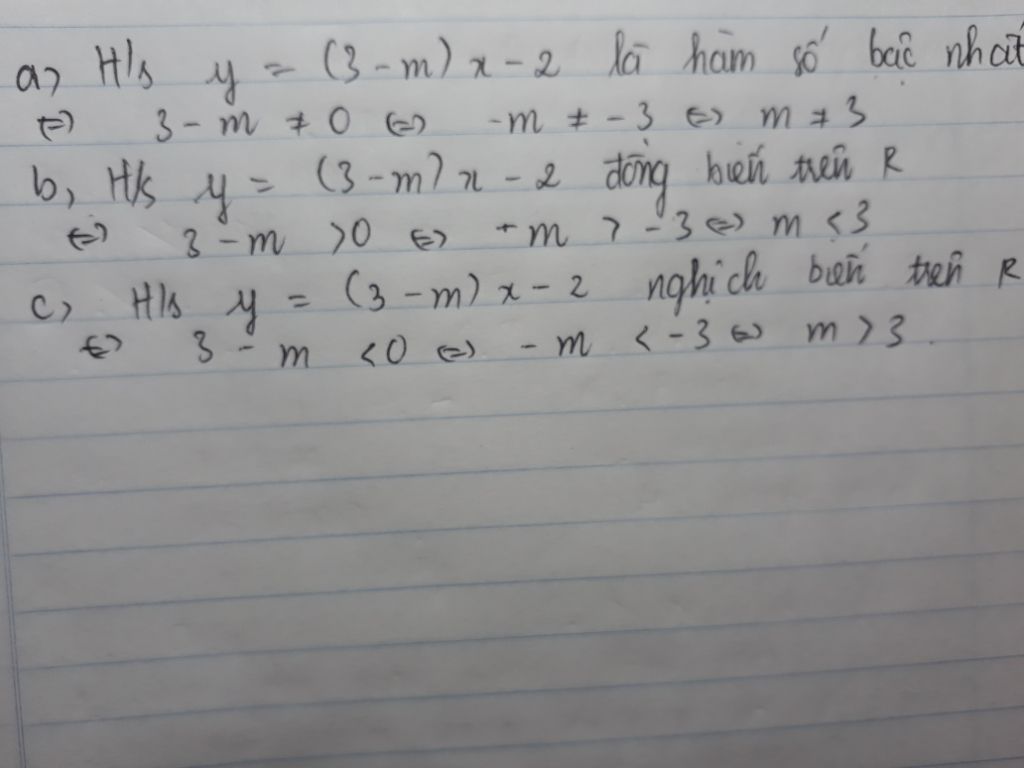 a, H/s y = (3 - m) x - 2 là hàm số bậc nhất
⇔ 3 - m ≠ 0 ⇔ -m ≠ -3 ⇔ m ≠ 3
b, H/s y = (3 - m) x - 2 đồng biến trên R
⇔ 3 - m > 0 ⇔ -m > -3 ⇔ m < 3
c, H/s y = (3 - m) x - 2 nghịch biến trên R
⇔ 3 - m < 0 ⇔ - m < -3 ⇔ m > 3.